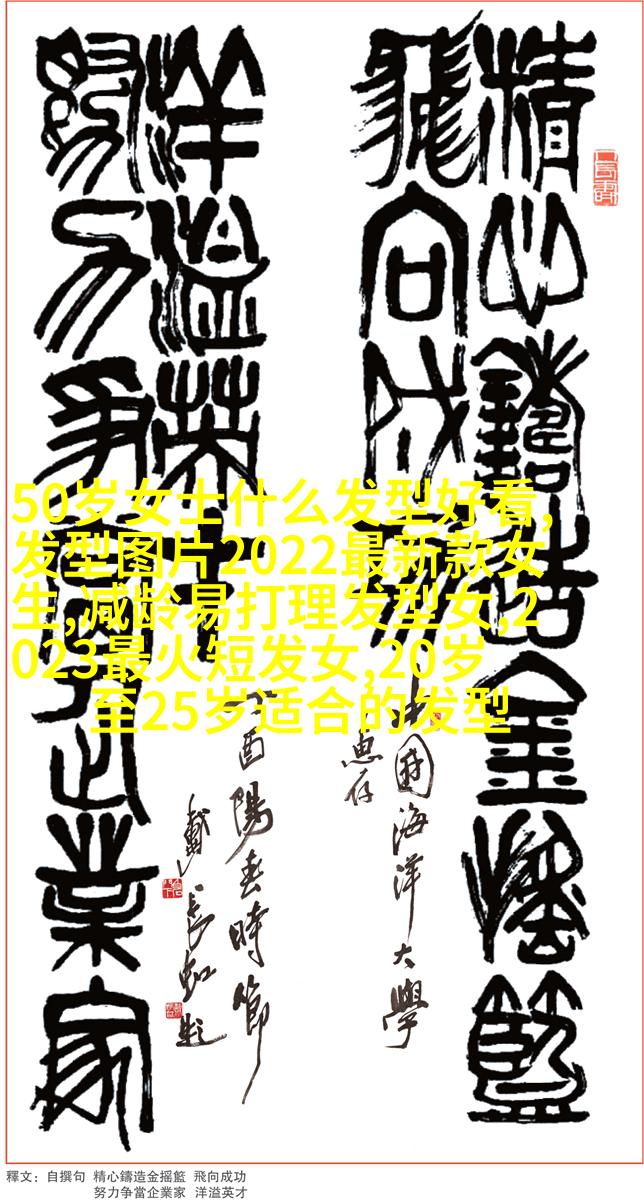 精心鑄造金搖籃
飛向成功
中國海洋大學
惠存
洋溢英才
努力爭當企業家
丁酉陽春時節
戴長虹題
50岁女士什么发型好看,
发型图片2022最新款女
生,减龄易打理发型女,2
023最火短发女,20岁
至25岁适合的发型
釋文：自撰句 精心鑄造金摇籃 飛向成功
努力争當企業家 洋溢英才